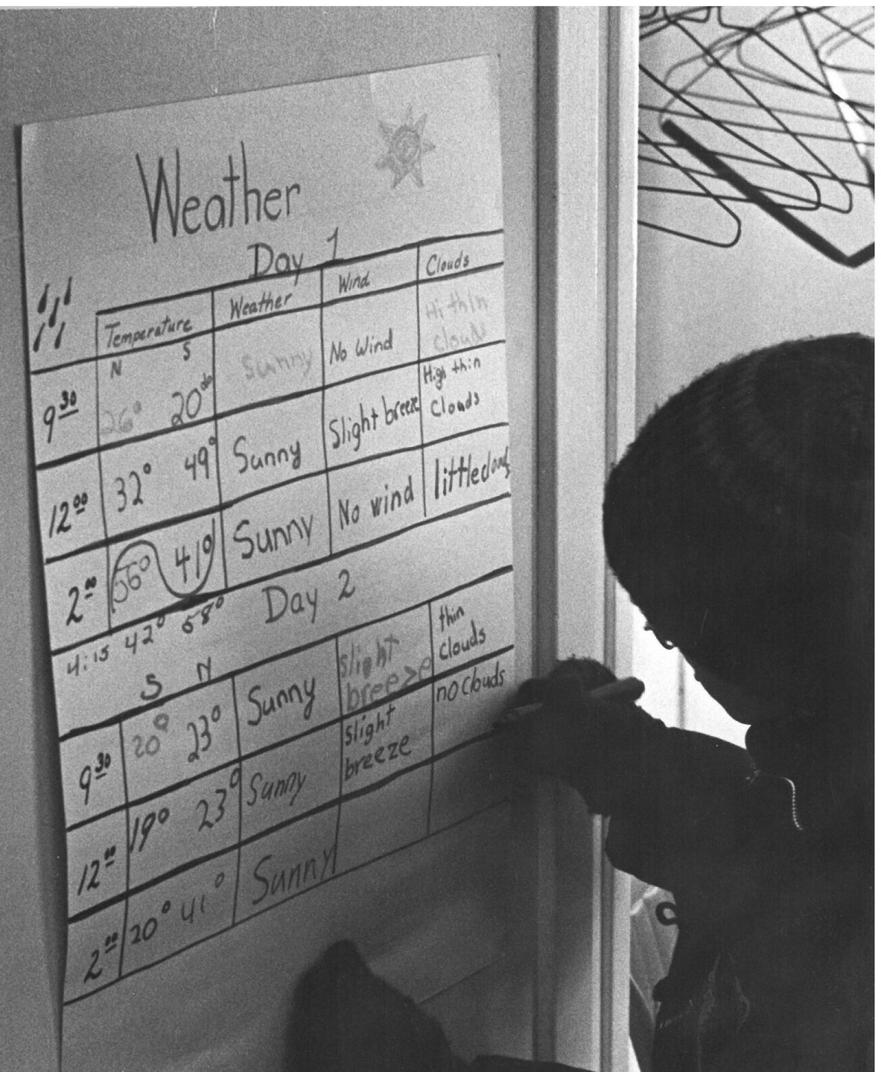 Weather
Day 1
Temperature Weather Wind Clouds
N S
9 30 26° 20° Sunny No Wind Hi thin clouds
12 00 32° 49° Sunny Slight breeze High thin Clouds
2 00 56° 41° Sunny No wind little clouds
4:15 42° 58° Day 2
S N
9 30 20° 23° Sunny slight breeze thin clouds
12 00 19° 23° Sunny slight breeze no clouds
2 00 20° 41° Sunny